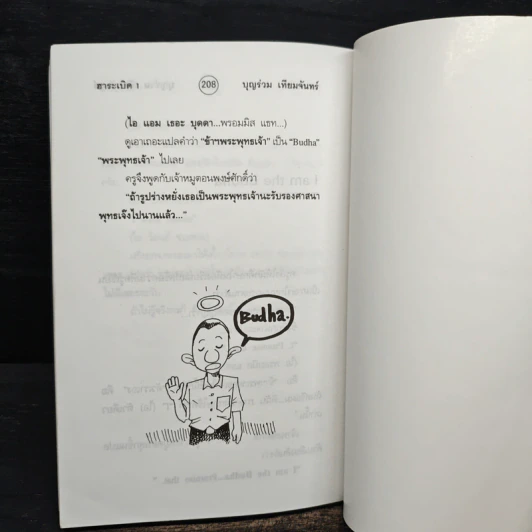 ฮาระเบิด 1
208
บุญร่วม เทียมจันทร์
(ไอ แอม เธอะ บุดดา...พรอมมิส แธท...)
ดูเอาเถอะแปลคำว่า "ข้าฯพระพุทธเจ้า" เป็น "Budha"
"พระพุทธเจ้า" ไปเลย
ครูจึงพูดกับเจ้าหมูตอนพงษ์ศักดิ์ว่า
"ถ้ารูปร่างหยั่งเธอเป็นพระพุทธเจ้านะรับรองศาสนา
พุทธเจ๊งไปนานแล้ว..."
Budha.